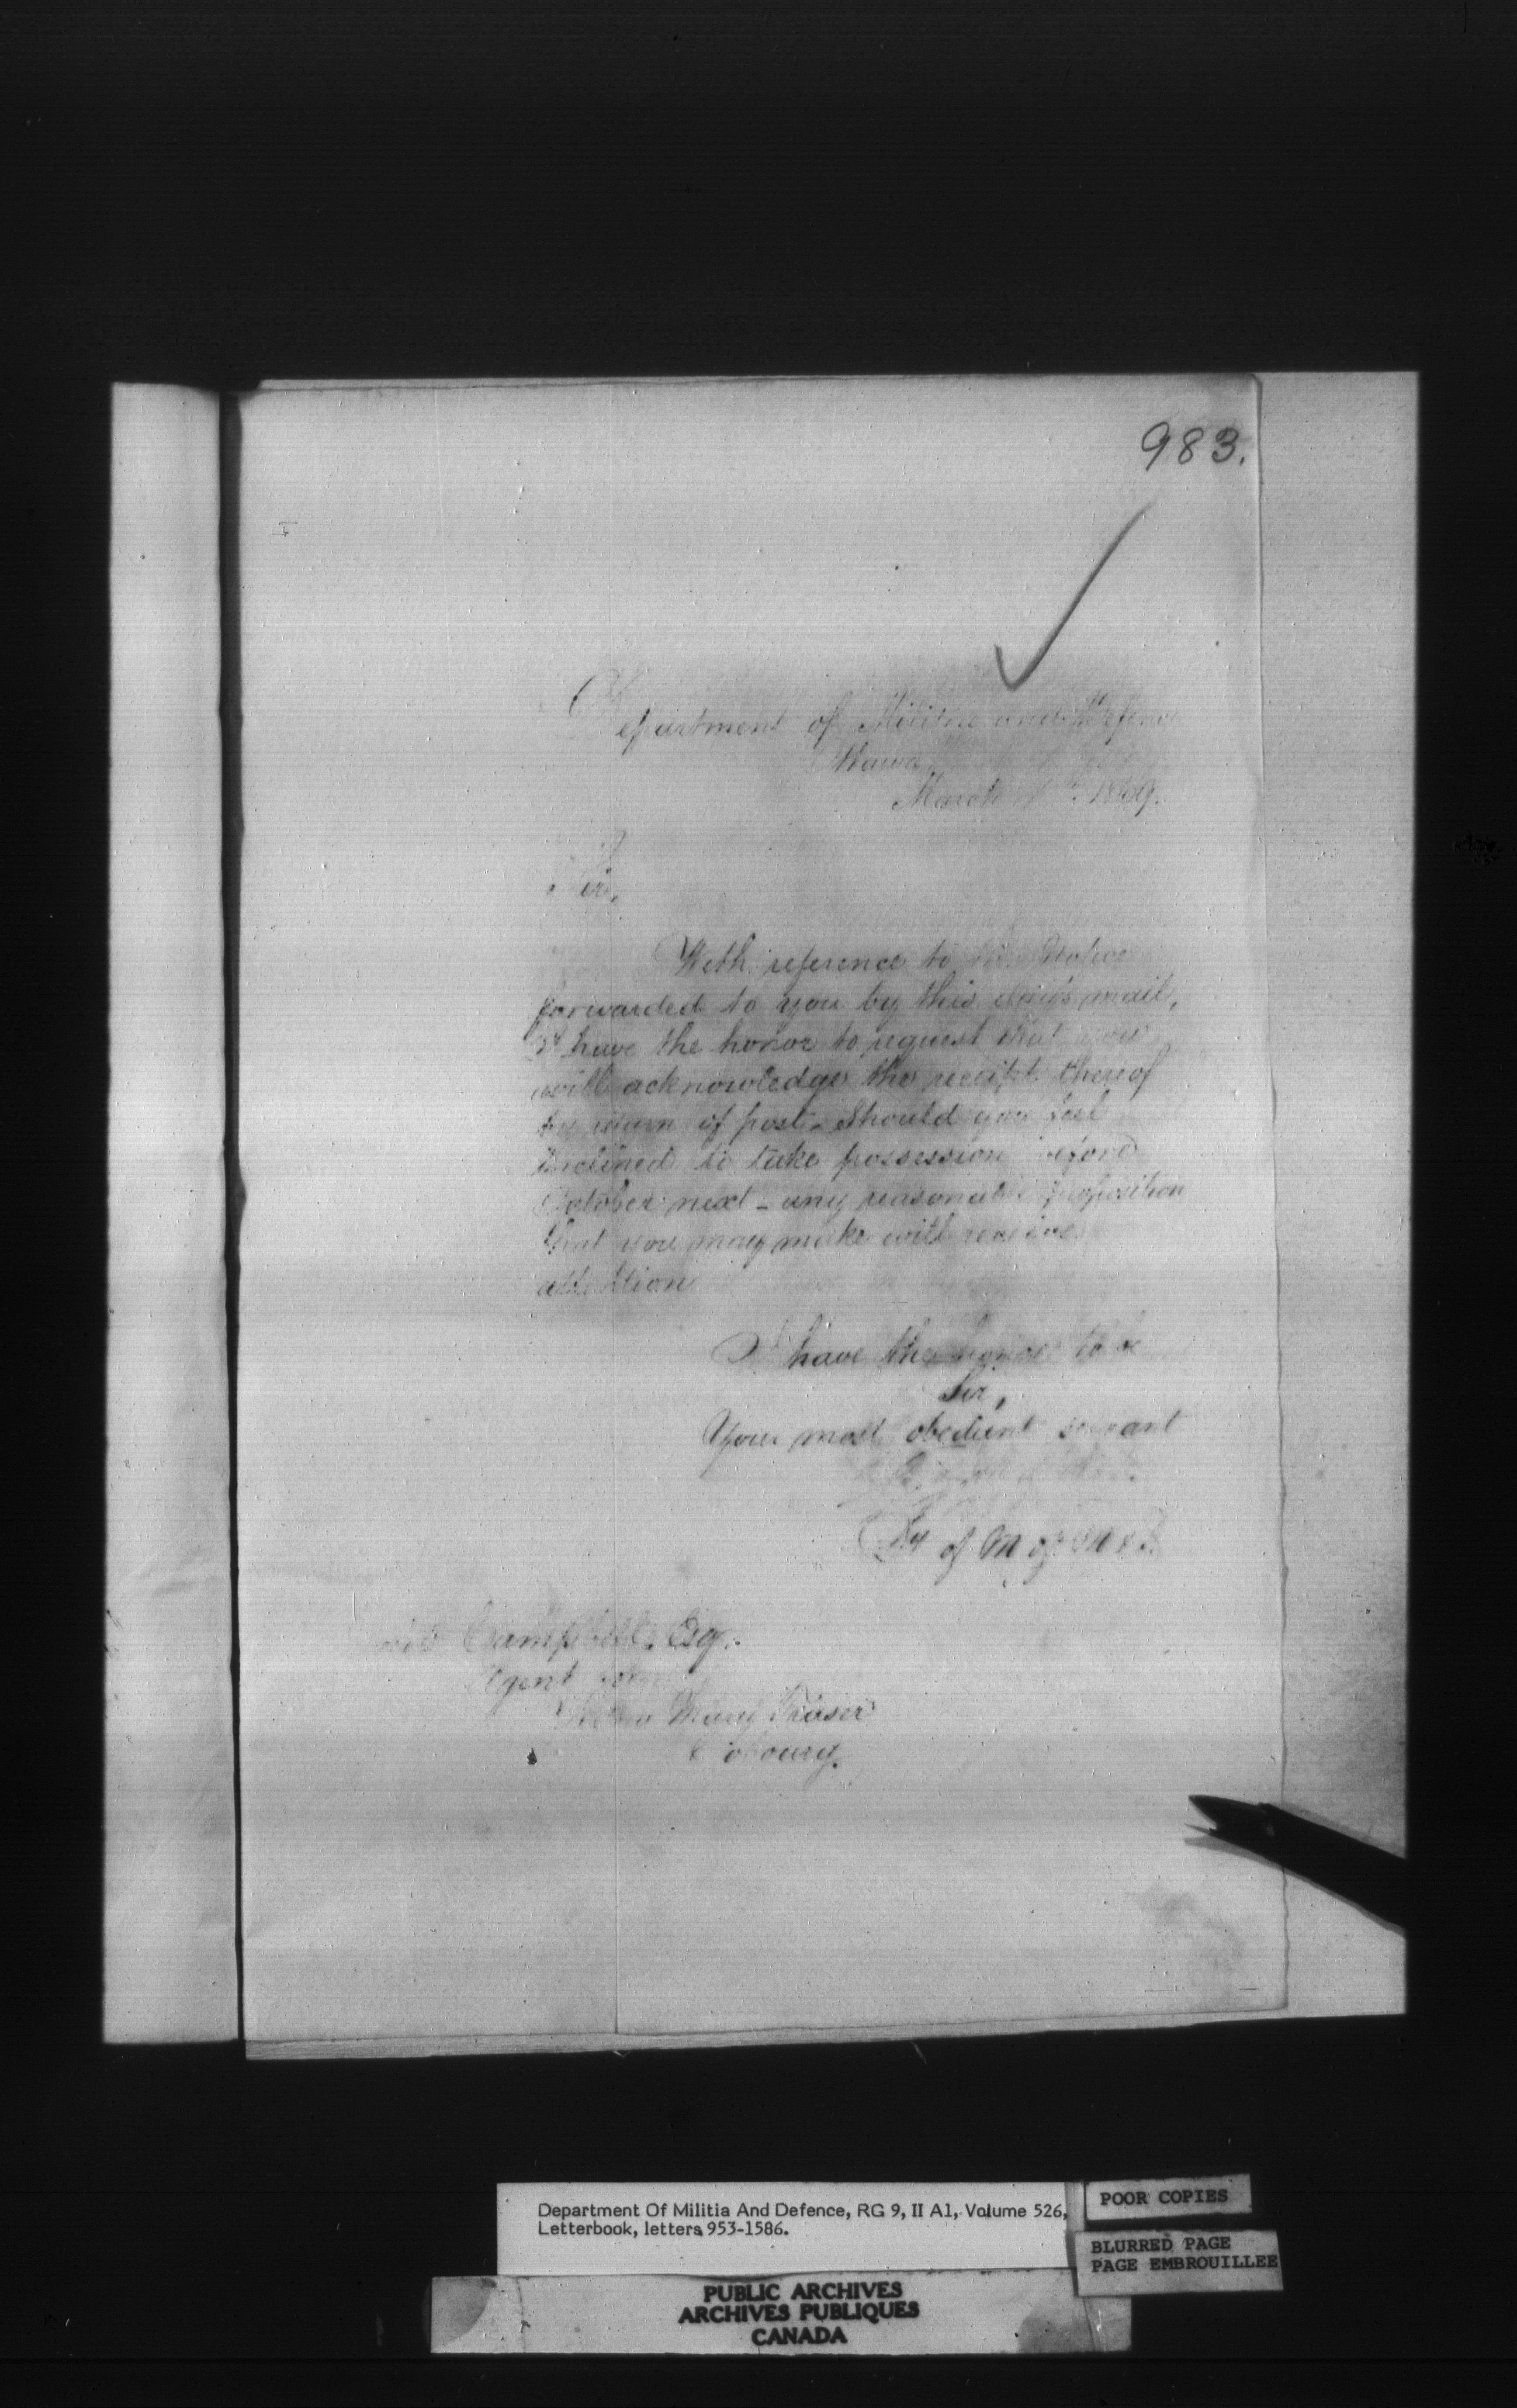 983.
Department of Militia and Defence
Ottawa
March 1869.
Sir,
With reference to the Notice
forwarded to you by this day's mail,
I have the honor to request that you
will acknowledge the receipt thereof
by return of post. Should you feel
inclined to take possession before
October next - any reasonable proposition
that you may make will receive
attention
I have the honor to be
Sir,
Your most obedient servant
of M of M & D.
Campbell Esq.
Agent
Mary Fraser
Cobourg.
Department Of Militia And Defence, RG 9, II A1, Volume 526,
Letterbook, letters 953-1586.
POOR COPIES
BLURRED PAGE
PAGE EMBROUILLEE
PUBLIC ARCHIVES
ARCHIVES PUBLIQUES
CANADA